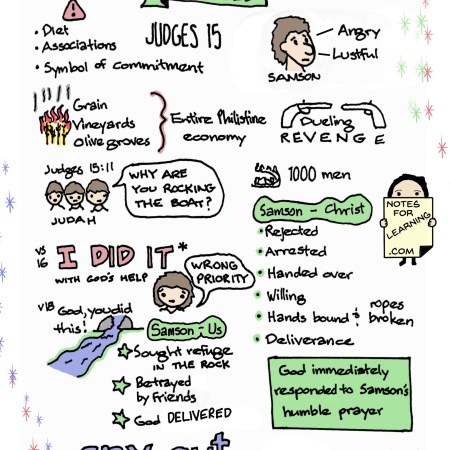 • Diet
• Associations
• Symbol of commitment
JUDGES 15
Angry
Lustful
SAMSON
Grain
Vineyards
olive groves
Entire Philistine
economy
Dueling
REVENGE
Judges 15:11
JUDAH
WHY ARE
YOU ROCKING
THE BOAT?
1000 men
NOTES
FOR
LEARNING
.COM
vs
16
I DID IT*
WITH GOD'S HELP
WRONG
PRIORITY
v18 God, you did
this!
Samson - Us
Sought refuge
IN THE ROCK
Betrayed
by Friends
God DELIVERED
Samson - Christ
• Rejected
• Arrested
• Handed over
• Willing
• Hands bound & ropes
broken
• Deliverance
God immediately
responded to Samson's
humble prayer